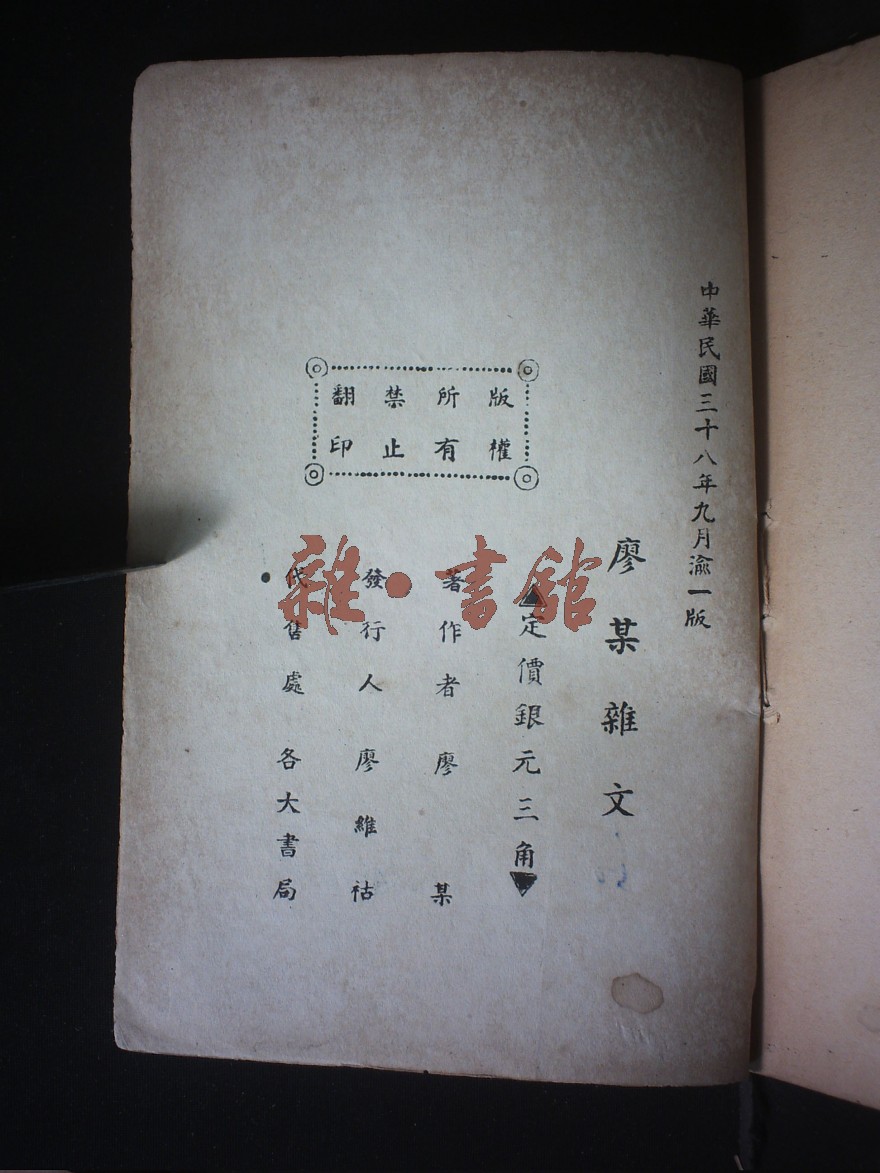 中華民國三十八年九月渝一版
廖某雜文
▲定價銀元三角▼
著作者廖某
發行人廖維祜
代售處各大書局
版權
所有
禁止
翻印
雜·書館